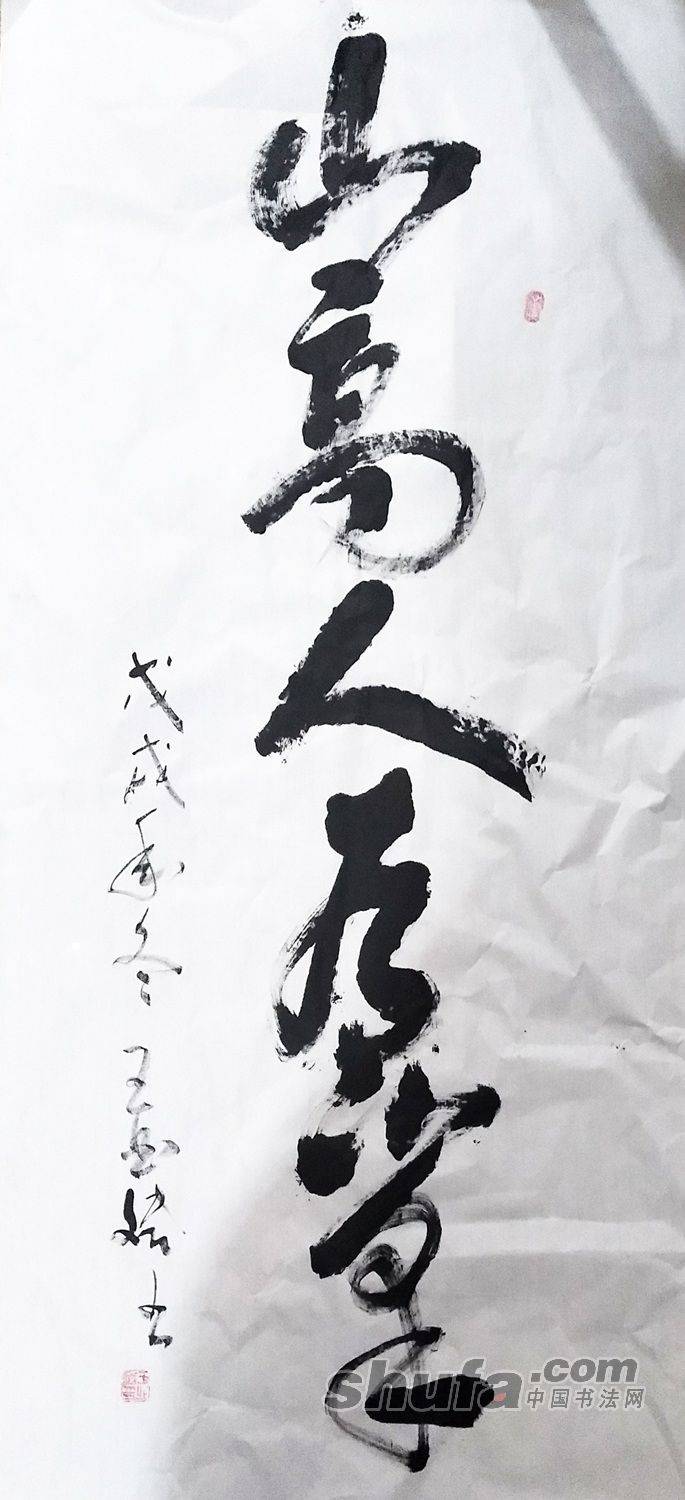 山高人为峰
戊戌年冬 王 书
shufa.com
中国书法网